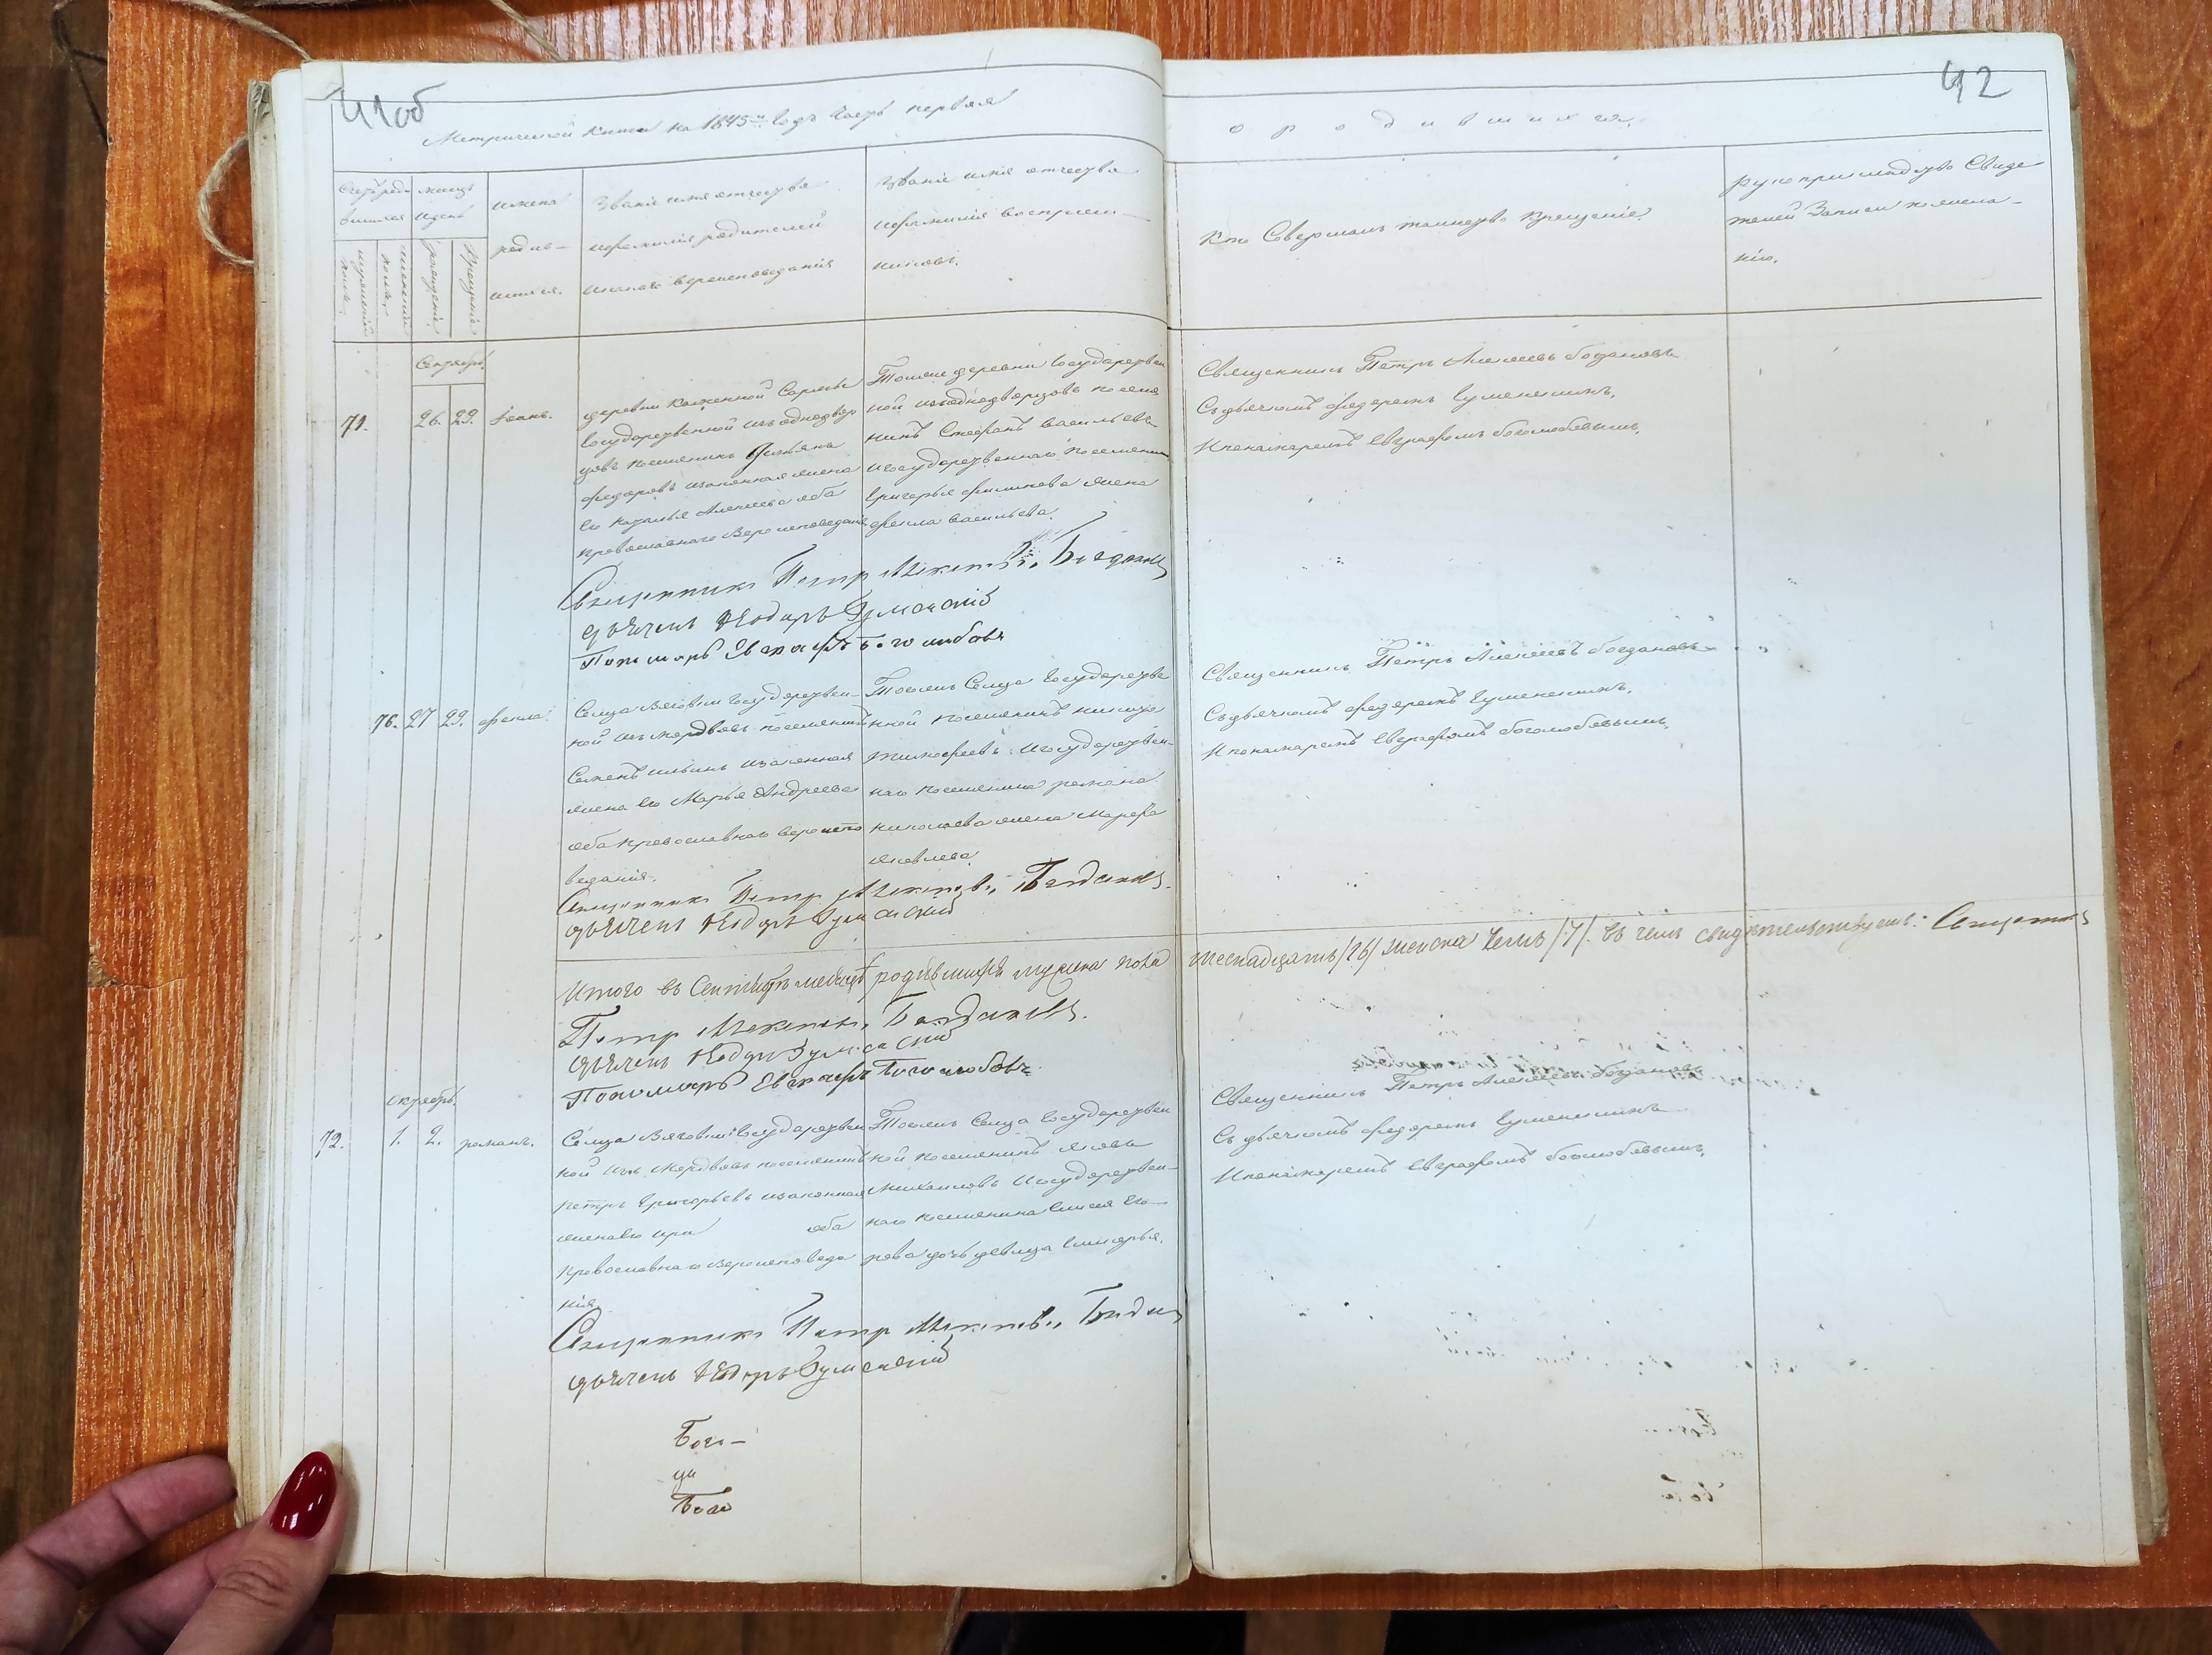 41об
42
Метрической книги на 1845й годъ часть первая
о родившихся.
Счетъ роди-
вшихся
мужеска
пола.
женска
пола.
месяцъ
и день
рожденiя.
крещенiя
имена
родив-
шихся.
Званiе имя отчество
и фамилiя родителей
и какого вероисповеданiя
Званiе имя отчество
и фамилiя восприем-
никовъ.
Кто Совершалъ таинство крещенiя.
Рукоприкладство Свиде
телей Записи по жела-
нiю.
Сентябрь.
71.
26. 29.
Iоанъ.
деревни Казенной Сармы
Государственной изъ однодвор
цовъ поселянинъ
федоровъ и законная жена
его Наталья Алексеева оба
православнаго Вероисповеданiя
Тояже деревни Государствен
ной изъ однодворцовъ поселя
нинъ Стефанъ Васильевъ
и Государственнаго поселянина
Григорья филипова жена
фекла Васильева.
Священникъ Петръ Алексеевъ Богдановъ
Съ дьячкомъ федоромъ Гуменскимъ.
И пономаремъ Евграфомъ боголюбовымъ.
Священникъ Петр Алексеевъ Богдановъ
дьячекъ Ѳедоръ Гуменскiй
Пономарь Евграфъ Боголюбовъ
76. 27 29.
фекла.
Сельца Вяговки Государствен
ной изъ мордвовъ поселянинъ
Семенъ Ильинъ и законная
жена его Марья Андреева
оба православнаго вероиспо
веданiя.
Тогожъ Сельца Государстве
нной поселянинъ
Тимофеевъ и Государствен-
наго поселянина романа
николаева жена Марфа
Яковлева.
Священникъ Петръ Алексеевъ богдановъ
Съ дьячкомъ федоромъ Гуменскимъ.
И пономаремъ Евграфомъ боголюбовымъ.
Священникъ Петр Алексеевъ Богдановъ.
дьячекъ Ѳедоръ Гуменскiй
Итого въ Сентябре месяце родившихся мужеска пола шеснадцать /16/ женска Семь /7/. въ чемъ свидетельствуемъ: Священникъ
Петр Алексеевъ Богдановъ.
дьячекъ Ѳедоръ Гуменскiй
Пономарь Евграфъ Боголюбовъ.
октябрь.
72.
1. 2.
романъ.
Сельца Вяговки Государствен
ной изъ Мордвовъ поселянинъ
Петръ Григорьевъ и законная
жена его ири оба
православнаго вероисповеда
нiя.
Тогожъ Сельца Государствен
ной поселянинъ Яковъ
Михаиловъ и Государствен-
наго поселянина Его-
рова дочь девица
Священникъ Петръ Алексеевъ богдановъ
Съ дьячкомъ федоромъ Гуменскимъ
И пономаремъ Евграфомъ боголюбовымъ.
Священникъ Петр Алексеевъ Богдановъ
дьячекъ Ѳедоръ Гуменскiй
Бого-
Бого